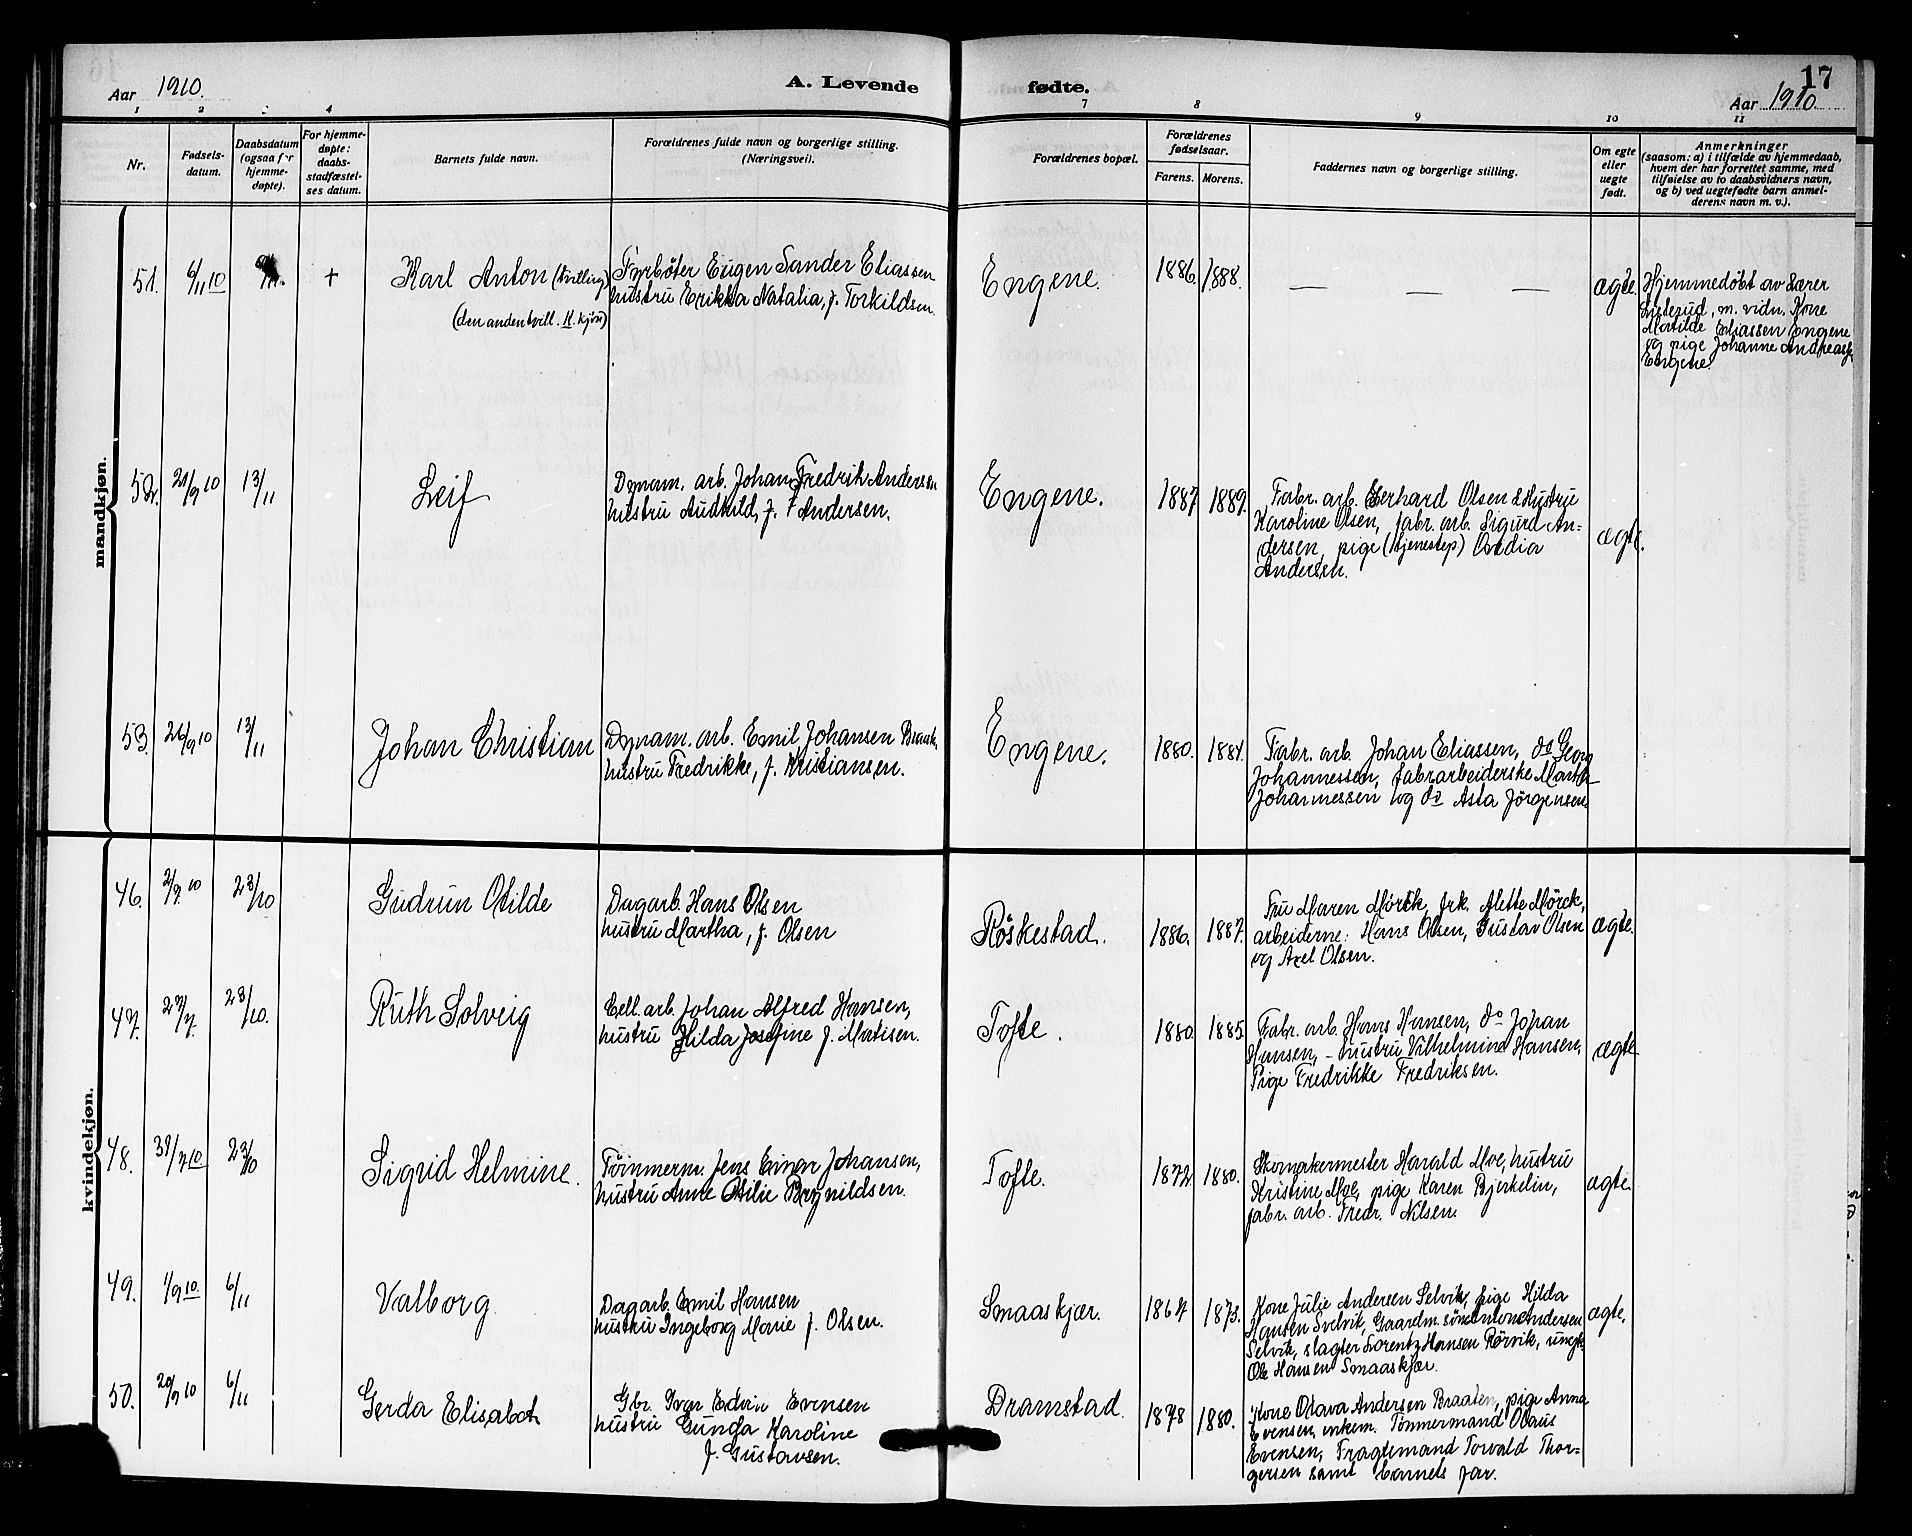 17
Aar 1910.
A. Levende fødte.
Aar 1910.
1 2 3 4 7 8 9 10 11
Nr.
Fødsels-
datum.
Daabsdatum
(ogsaa for
hjemme-
døpte).
For hjemme-
døpte:
daabs-
stadfæstel-
ses datum.
Barnets fulde navn.
Forældrenes fulde navn og borgerlige stilling.
(Næringsveil.
Forældrenes bopæl.
Forældrenes
fødselsaar.
Farens. Morens.
Faddernes navn og borgerlige stilling.
Om egte
eller
uegte
født.
Anmerkninger
(saasom: a) i tilfælde av hjemmedaab,
hvem der har forrettet samme, med
tilføielse av to daabsvidners navn,
og b) ved uegtefødte barn anmel-
derens navn m. v.).
mandkjøn.
51.
6/11 10
+
Karl Anton (tvilling)
(den anden tvill. K. kjøn)
Fyrbøter Eugen Sander Eliassen
hustru Erikka Natalia, f. Torkildsen.
Engene.
1886. 1888.
— — —
ægte.
Hjemmedøbt av Lærer
Listerud, m. vidn. Kone
Matilde Eliassen Engene
og pige Johanne Andreass.
Engene.
52.
21/9 10
13/11
Leif
Dynam. arb. Johan Fredrik Andersen
hustru Audhild, f. Andersen.
Engene.
1887 1889.
Fabr. arb. Gerhard Olsen & Hustru
Karoline Olsen, fabr. arb. Sigurd An-
dersen, pige (tjenestep)
Andersen.
ægte.
53.
26/9 10
13/11
Johan Christian
Dynam. arb. Emil Johansen
hustru Fredrikke, f. Kristiansen.
Engene.
1880. 1884.
Fabr. arb. Johan Eliassen, do Georg
Johannessen, fabrarbeiderske Marta
Johannessen og do Asta Jörgensen
kvindekjøn.
46.
2/9 10
23/10
Gudrun Otilde
Dagarb. Hans Olsen
hustru Martha, f. Olsen
Röskestad.
1886. 1887.
Fru Maren Mörck, frk. Alette Mörck,
arbeiderne: Hans Olsen, Gustav Olsen
og Axel Olsen.
ægte.
47.
23/10.
Ruth Solveig
Cell. arb. Johan Alfred Hansen,
hustru Hilda Josefine f. Matisen.
Tofte.
1880. 1885.
Fabr. arb. Hans Hansen, do Johan
Hansen, - hustru Vilhelmine Hansen,
Pige Fredrikke Fredriksen.
ægte
48.
23/10
Sigrid Helmine.
Tömmerm. Jens Einar Johansen,
hustru Anne Otilie Brynildsen.
Tofte.
1872 1880.
Skomakermester Harald Moe, hustru
Kristine Moe, pige Karen Bjerkelin,
fabr. arb. Fredr. Nilsen.
ægte.
49.
1/9 10.
6/11
Valborg
Dagarb. Emil Hansen
hustru Ingeborg Marie f. Olsen.
Smaaskjær.
1864 1873.
Kone Julie Andersen Selvik, pige Hilda
Hansen Svelvik, Gaardm. sön Anton Andersen
Selvik, slagter Lorentz Hansen Rörvik, ungk.
Ole Hansen Smaaskjær.
ægte.
50.
20/9 10
6/11
Gerda Elisabet
Gbr. Iver Edvin Evensen
hustru Gunda Karoline
f. Gustavsen.
Dramstad.
1878 1880.
Kone Olava Andersen Braaten, pige Anna
Evensen, enkem. Tömmermand Olaus
Evensen, Fragtemand Torvald Thor-
gersen samt barnets far.